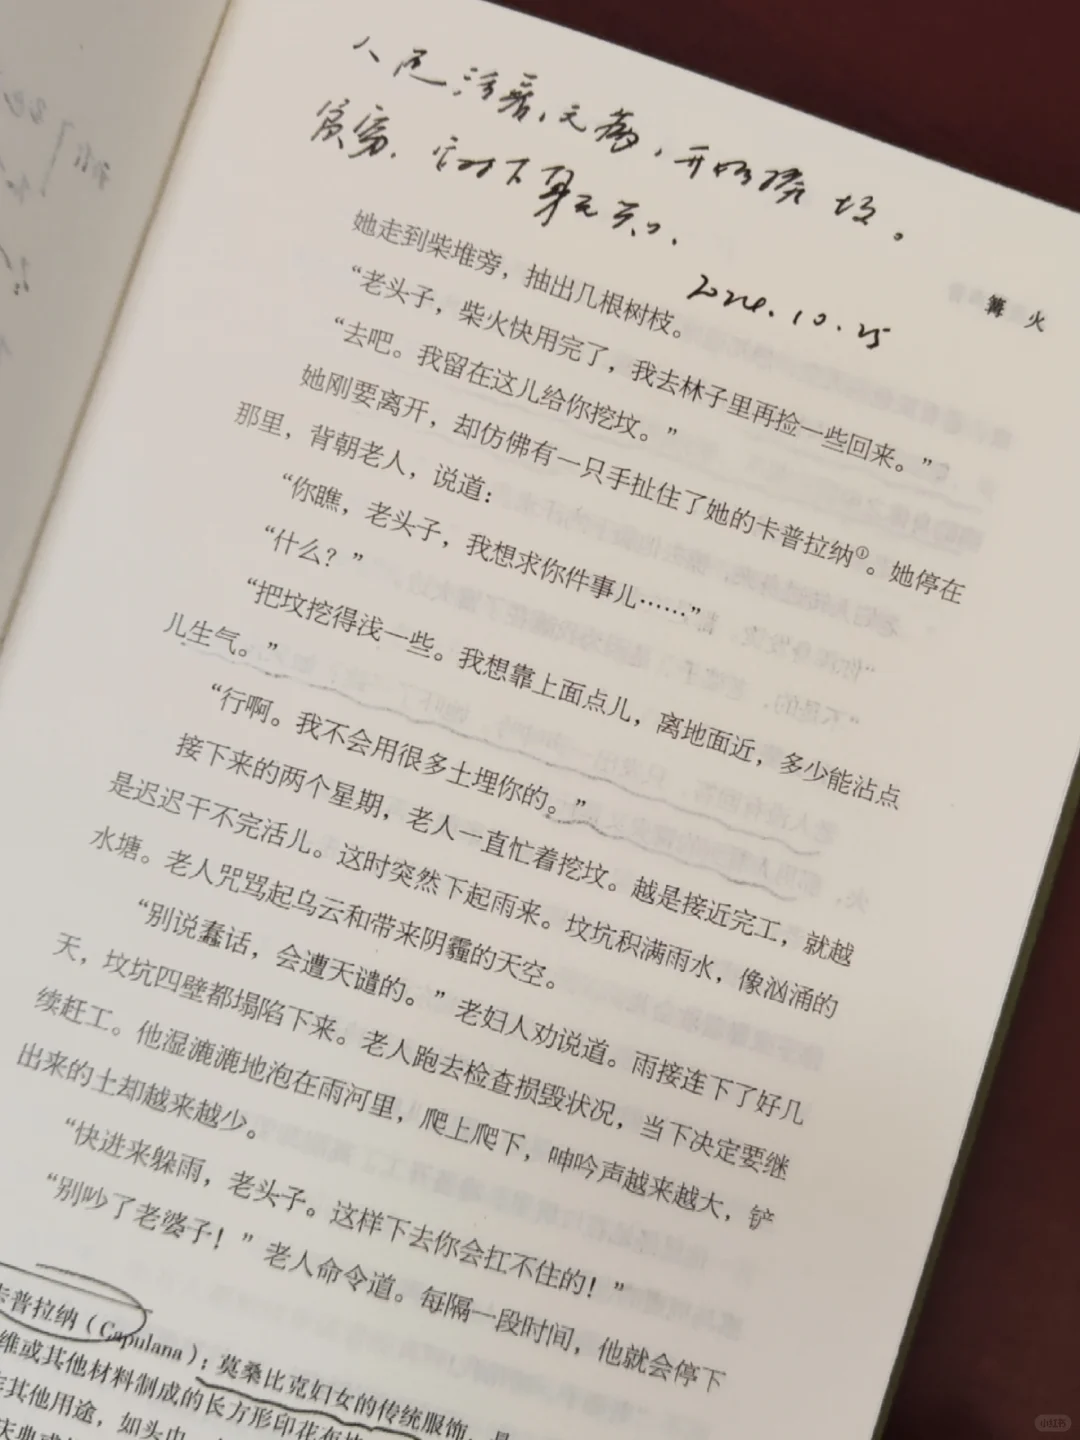 人还活着,无病,开始挖坟。
贫穷.
2024.10.25
篝 火
她走到柴堆旁，抽出几根树枝。
“老头子，柴火快用完了，我去林子里再捡一些回来。”
“去吧。我留在这儿给你挖坟。”
她刚要离开，却仿佛有一只手扯住了她的卡普拉纳①。她停在
那里，背朝老人，说道：
“你瞧，老头子，我想求你件事儿……”
“什么？”
“把坟挖得浅一些。我想靠上面点儿，离地面近，多少能沾点
儿生气。”
“行啊。我不会用很多土埋你的。”
接下来的两个星期，老人一直忙着挖坟。越是接近完工，就越
是迟迟干不完活儿。这时突然下起雨来。坟坑积满雨水，像汹涌的
水塘。老人咒骂起乌云和带来阴霾的天空。
“别说蠢话，会遭天谴的。”老妇人劝说道。雨接连下了好几
天，坟坑四壁都塌陷下来。老人跑去检查损毁状况，当下决定要继
续赶工。他湿漉漉地泡在雨河里，爬上爬下，呻吟声越来越大，铲
出来的土却越来越少。
“快进来躲雨，老头子。这样下去你会扛不住的！”
“别吵了老婆子！”老人命令道。每隔一段时间，他就会停下
卡普拉纳（Capulana）：莫桑比克妇女的传统服饰，是
维或其他材料制成的长方形印花布
其他用途，如头巾
小红书